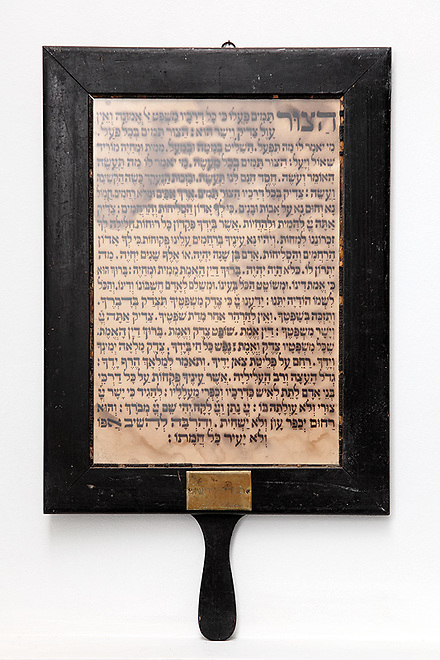 הצור תמים פעלו כי כל דרכיו משפט אל אמונה ואין
עול צדיק וישר הוא: הצור תמים בכל פעל.
מי יאמר לו מה תפעל. השליט במטה ובמעל. ממית ומחיה מוריד
שאול ויעל: הצור תמים בכל מעשה. מי יאמר לו מה תעשה
האומר ועושה. חסד חנם לנו תעשה. ובזכות הנעקד כשה הקשיבה
ועשה: צדיק בכל דרכיו הצור תמים. ארך אפים ומלא רחמים. חמל
נא וחוס נא על אבות ובנים. כי לך אדון הסליחות והרחמים: צדיק
אתה יי להמית ולהחיות. אשר בידך פקדון כל רוחות. חלילה לך
זכרוננו למחות. ויהיו נא עיניך ברחמים עלינו פקוחות. כי לך אדון
הרחמים והסליחות: אדם אם בן שנה יהיה. או אלף שנים יחיה. מה
יתרון לו. כלא היה יהיה. ברוך דין האמת ממית ומחיה: ברוך הוא
כי אמת דינו. ומשוטט הכל בעינו. ומשלם לאדם חשבונו ודינו. והכל
לשמו הודיה יתנו: ידענו יי כי צדק משפטך תצדק בדברך.
ותזכה בשפטך. ואין להרהר אחר מדת שפטך. צדיק אתה יי
וישר משפטיך: דין אמת. שופט צדק ואמת. ברוך דין האמת.
שכל משפטיו צדק ואמת: נפש כל חי בידך. צדק מלאה ימינך
וידך. רחם על פליטת צאן ידך. ותאמר למלאך הרף ידך:
גדל העצה ורב העליליה. אשר עיניך פקחות על כל דרכי
בני אדם לתת לאיש כדרכיו וכפרי מעלליו: להגיד כי ישר יי
צורי ולא עולתה בו: יי נתן ויי לקח יהי שם יי מברך: והוא
רחום יכפר עון ולא ישחית. והרבה להשיב אפו
ולא יעיר כל חמתו: